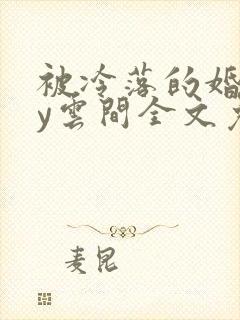 被冷落的婚
y雲間全文
麦昆